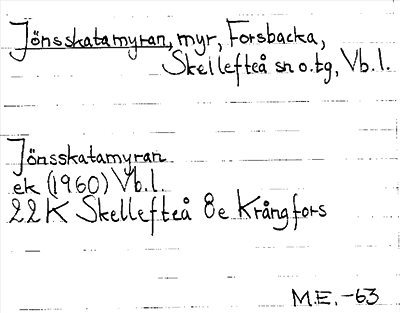 Jönsskatamyran, myr, Forsbacka,
Skellefteå sn o. tg, Vb. l.
Jönsskatamyran
ek (1960) Vb. l.
22K Skellefteå 8e Krångfors
M.E. -63